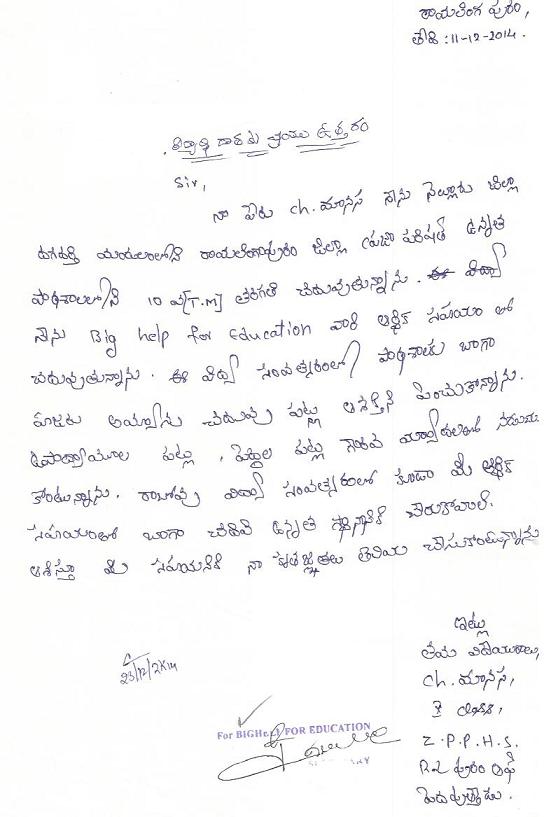 రాయలింగ పురం,
తేది : 11-12-2014.
విద్యార్థి దాతకు వ్రాయు ఉత్తరం
Sir,
నా పేరు ch. మానస నాను నెల్లూరు జిల్లా
దుగదర్తి మండలంలోని రాయలింగాపురం జిల్లా ప్రజా పరిషత్ ఉన్నత
పాఠశాలలోని 10 వ [T.M] తరగతి చదువుతున్నాను. ఈ విద్యా
నేను Big help for Education వారి ఆర్థిక సహయం తో
చదువుతున్నాను. ఈ విద్యా సంవత్సరంలో పాఠశాలకు బాగా
హాజరు అయ్యాను చదువు పట్ల ఆశక్తిని పెంచుకొన్నాను.
ఉపాధ్యాయుల పట్ల, పెద్దల పట్ల గౌరవ మర్యాదలతో నడుచు
కొంటున్నాను. రాబోవు విద్యా సంవత్సరంలో కూడా మీ ఆర్థిక
సహయంతో బాగా చదివి ఉన్నత స్థానానికి చేరుకోవాలని
ఆశిస్తూ మీ సహయనికి నా కృతజ్ఞతలు తెలియ చేసుకొంటున్నాను
ఇట్లు
తమ విదేయురాలు,
ch. మానస,
X class,
Z.P.P.H.S.
R.L పురం
23/12/2K14
For BIGHELP FOR EDUCATION
SECRETARY